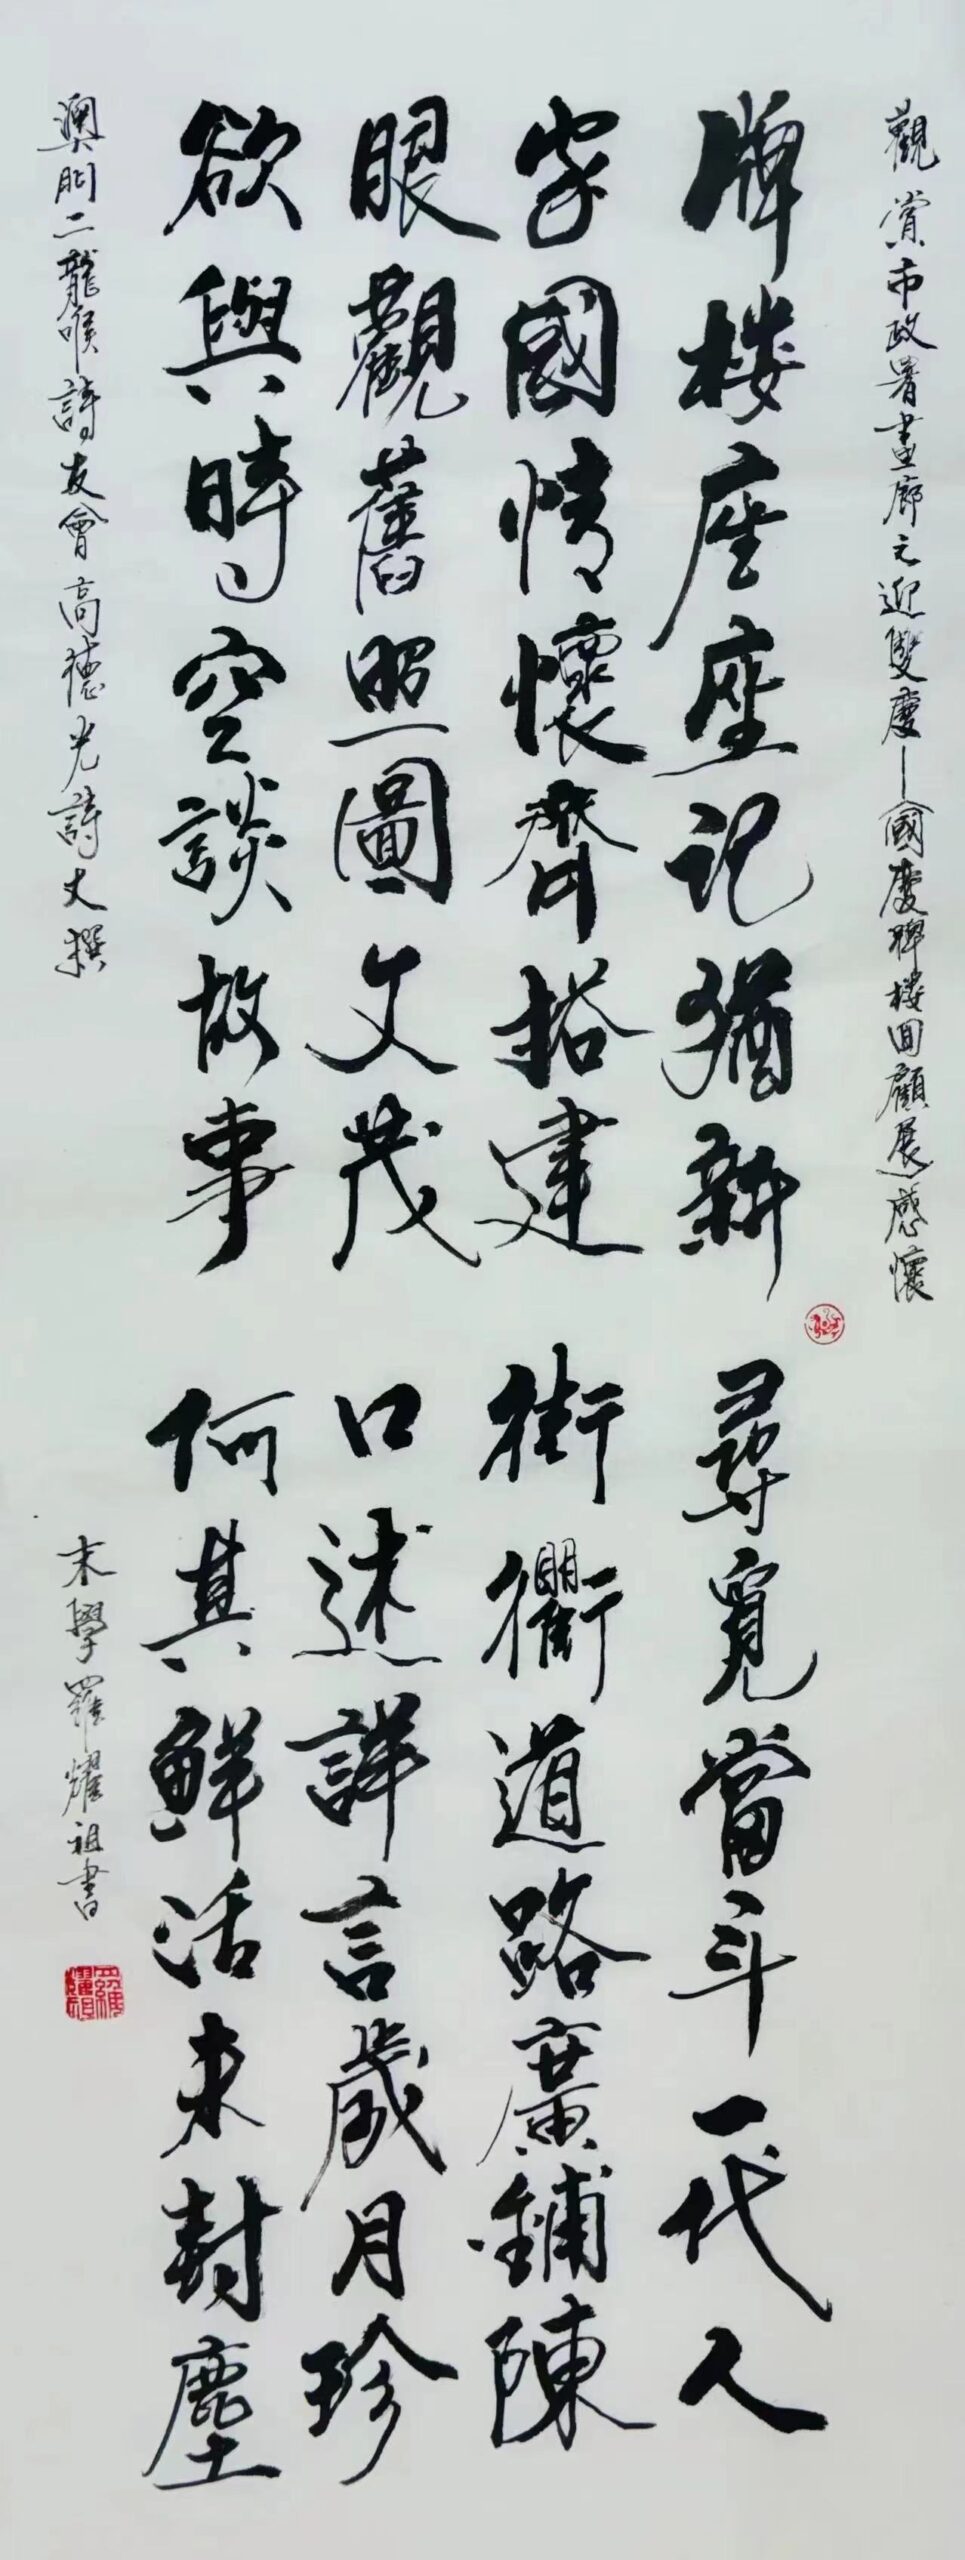 觀賞市政署畫廊之迎雙慶—國慶牌樓回顧展感懷
牌楼座座記猶新 尋覓當年一代人
家國情懷齊搭建 街衢道路廣鋪陳
眼觀舊照圖文茂 口述詳言歲月珍
欲與時空談故事 何其鮮活未封塵
澳門二龍喉詩友會高德光詩丈撰
末學羅耀祖書